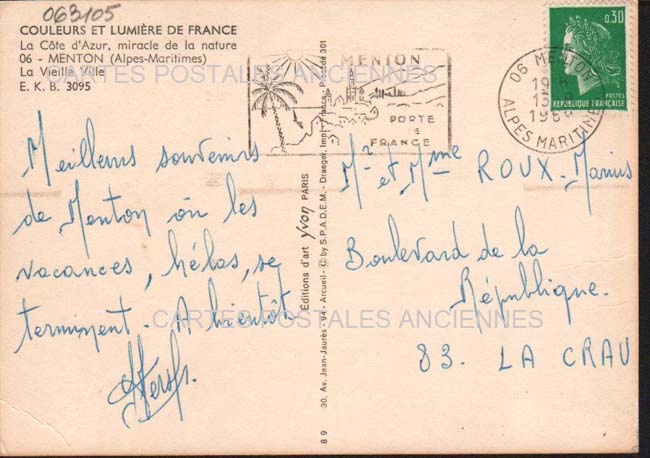 063105
COULEURS ET LUMIÈRE DE FRANCE
La Côte d'Azur, miracle de la nature
06 - MENTON (Alpes-Maritimes)
La Vieille Ville
E. K. B. 3095
MENTON
PORTE
DE
FRANCE
0.30
POSTES
REPUBLIQUE FRANÇAISE
06 MENTON
19 H
13
ALPES MARITIMES
Meilleurs souvenirs
de Menton où les
vacances, hélas, se
terminent. A bientôt.
Editions d'art Yvon PARIS
30, Av. Jean-Jaurès - 94 - Arcueil - © by S.P.A.D.E.M. - Draeger, Imp. France
301
8 9
Mr et Mme ROUX Marius
Boulevard de la
République.
83. LA CRAU
CARTES POSTALES ANCIENNES
CARTES POSTALES ANCIENNES